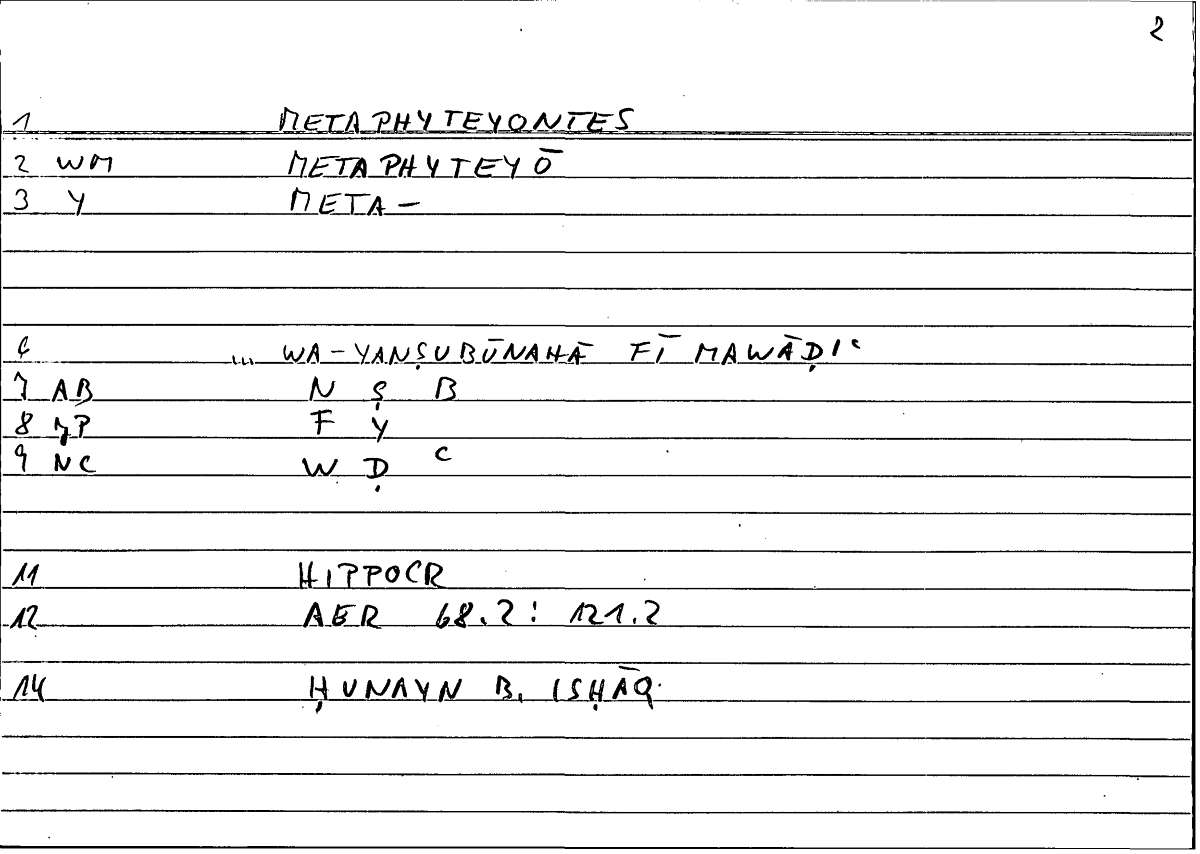 2
1 METAPHYTEYONTES
2 WM METAPHYTEYŌ
3 Y META-
6 ... WA-YANṢUBŪNAHĀ FĪ MAWĀḌIʿ
7 AB N Ṣ B
8 F Y
9 NC W Ḍ ʿ
11 HIPPOCR
12 AER 68.2: 121.2
14 ḤUNAYN B. ISḤĀQ